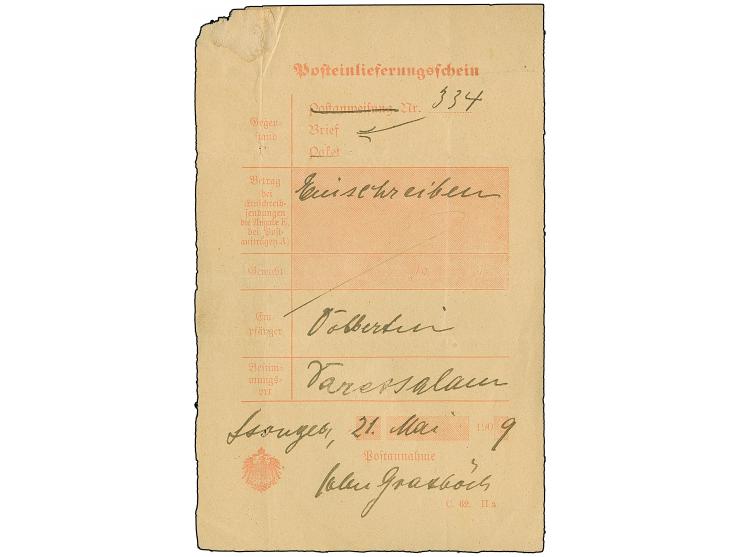 Posteinlieferungsschein
Gegen-
stand
Postanweisung Nr. 334
Brief
Paket
Betrag
bei
Einschreib-
sendungen
die Angabe E,
bei Post-
aufträgen A)
Einschreiben
Gewicht
Em-
pfänger
Völbertin
Bestim-
mungs-
ort
Daressalam
21. Mai 1909
Postannahme
C. 62. II a